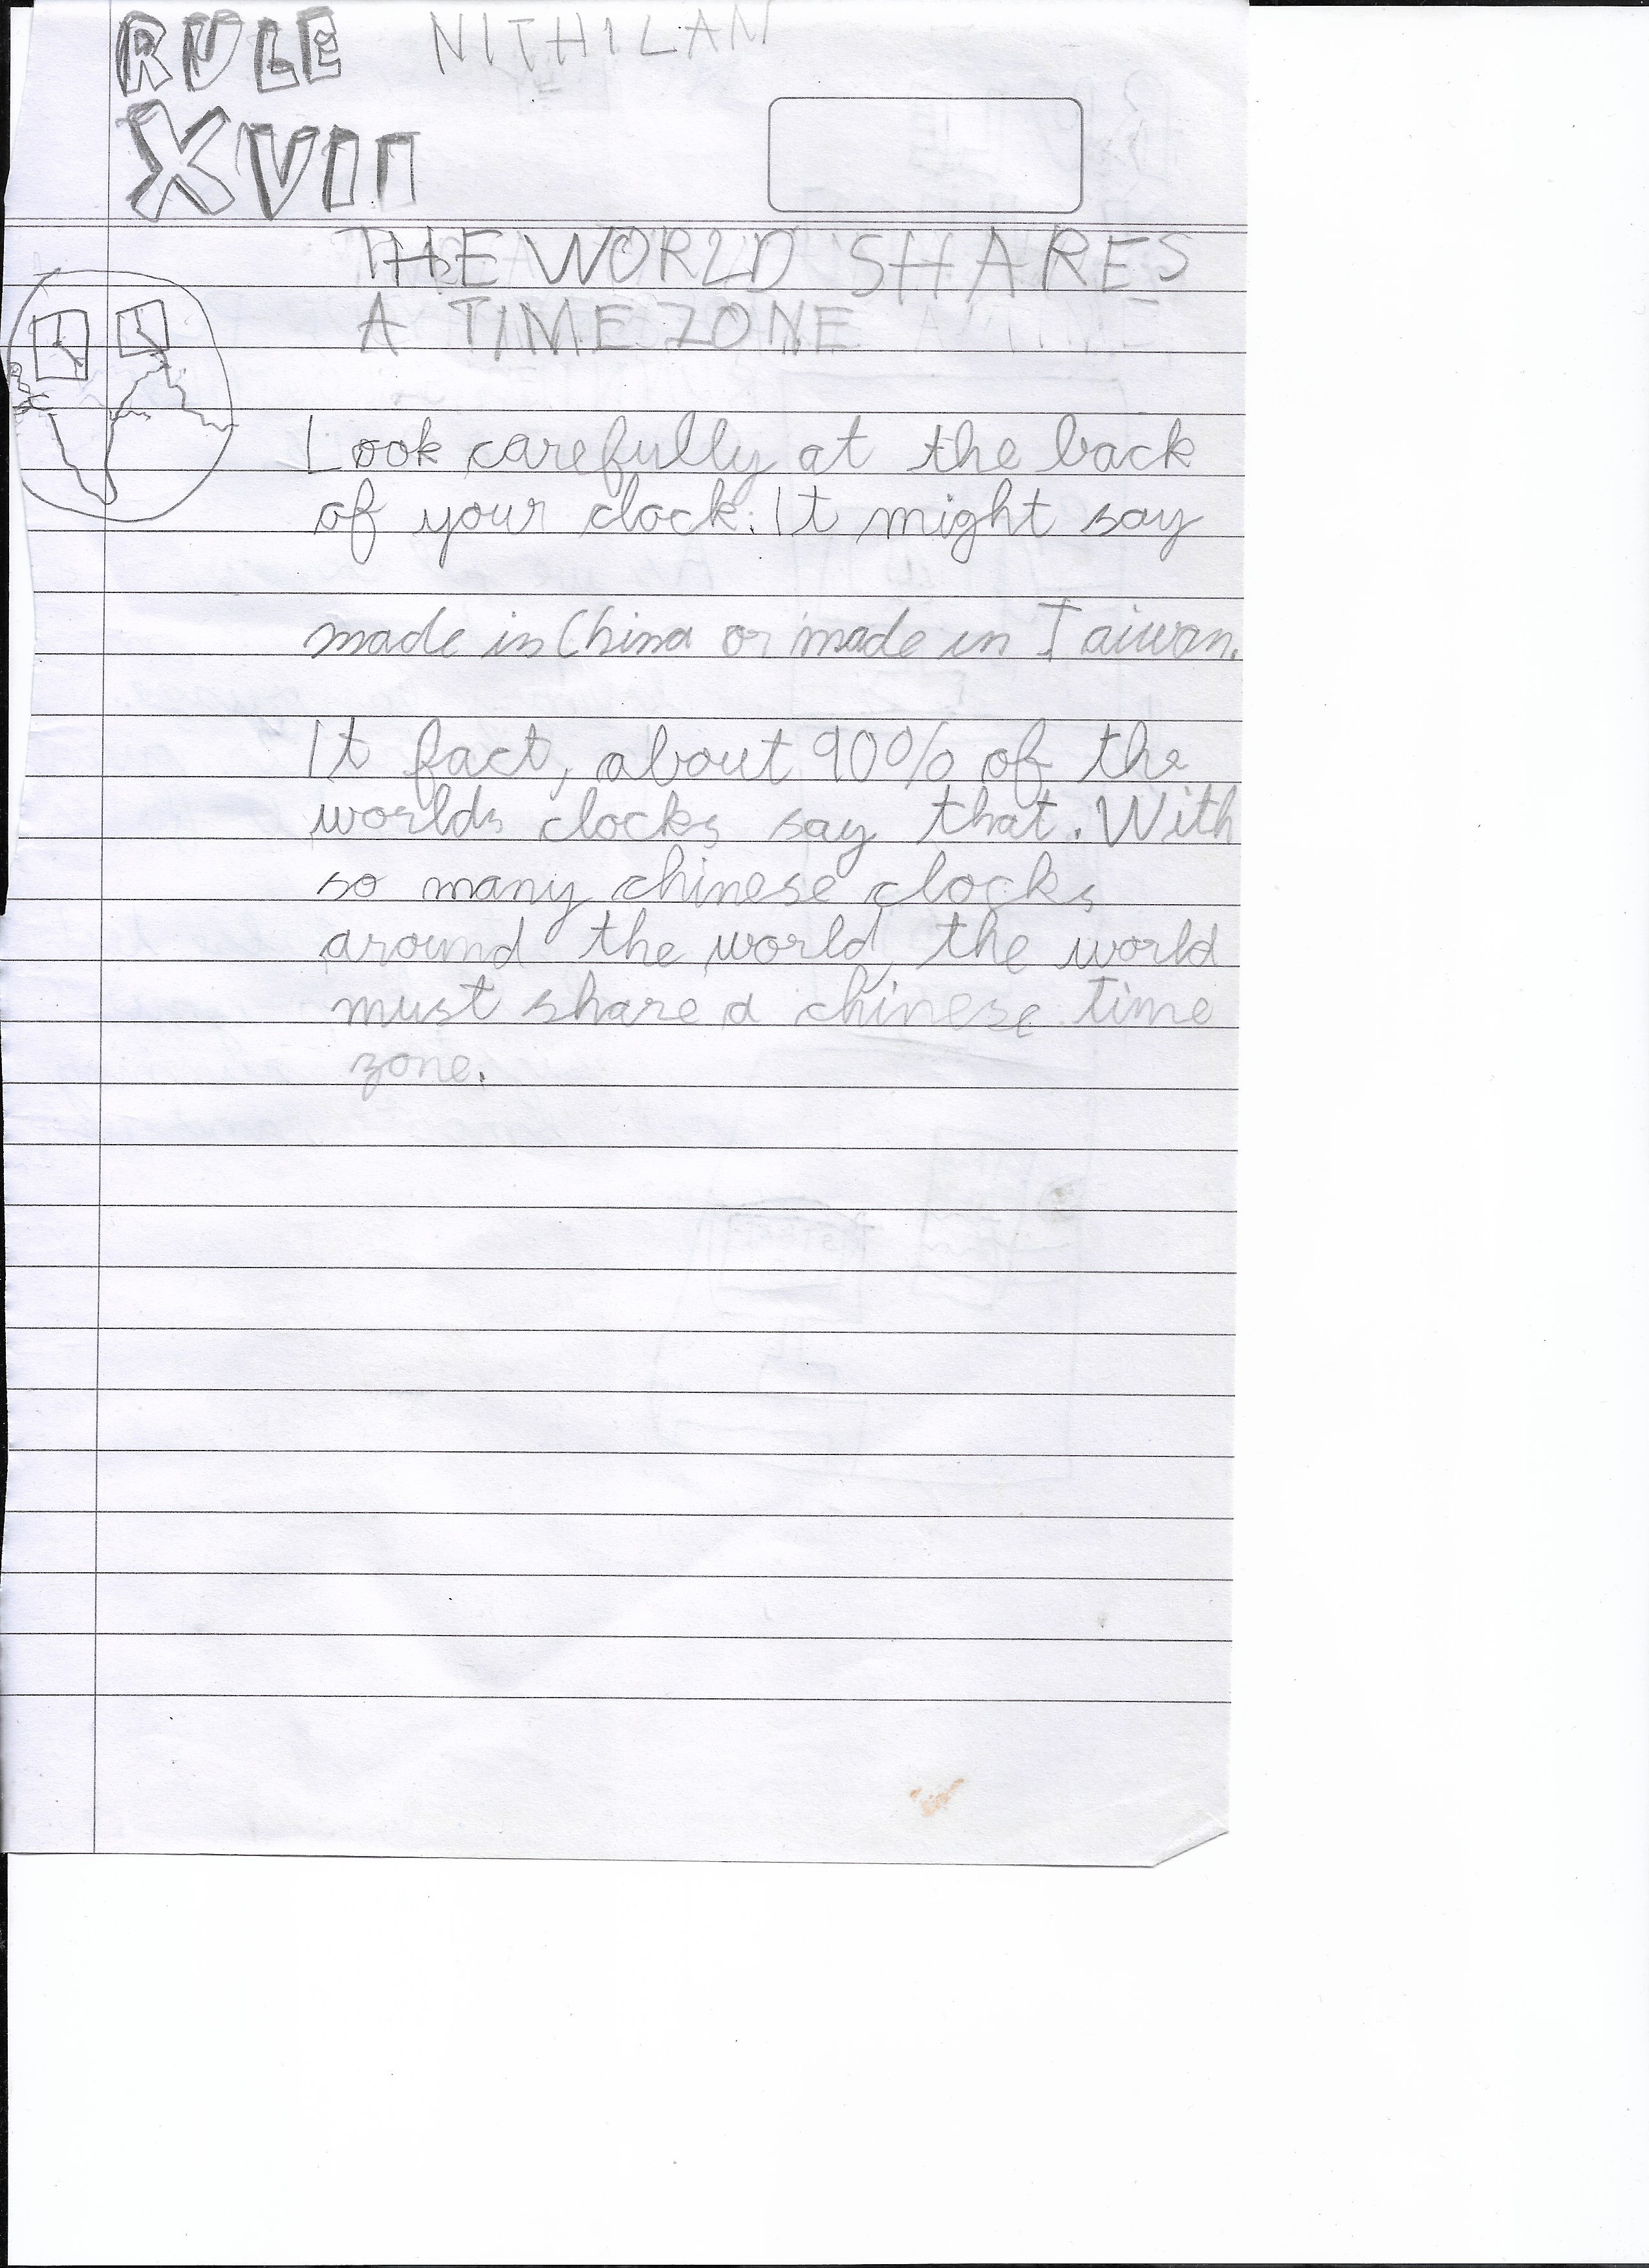 RULE NITHILAN
XVII
THE WORLD SHARES
A TIME ZONE
Look carefully at the back
of your clock. It might say
made in China or made in Taiwan.
It fact, about 90% of the
worlds clocks say that. With
so many chinese clocks
around the world, the world
must share a chinese time
zone.